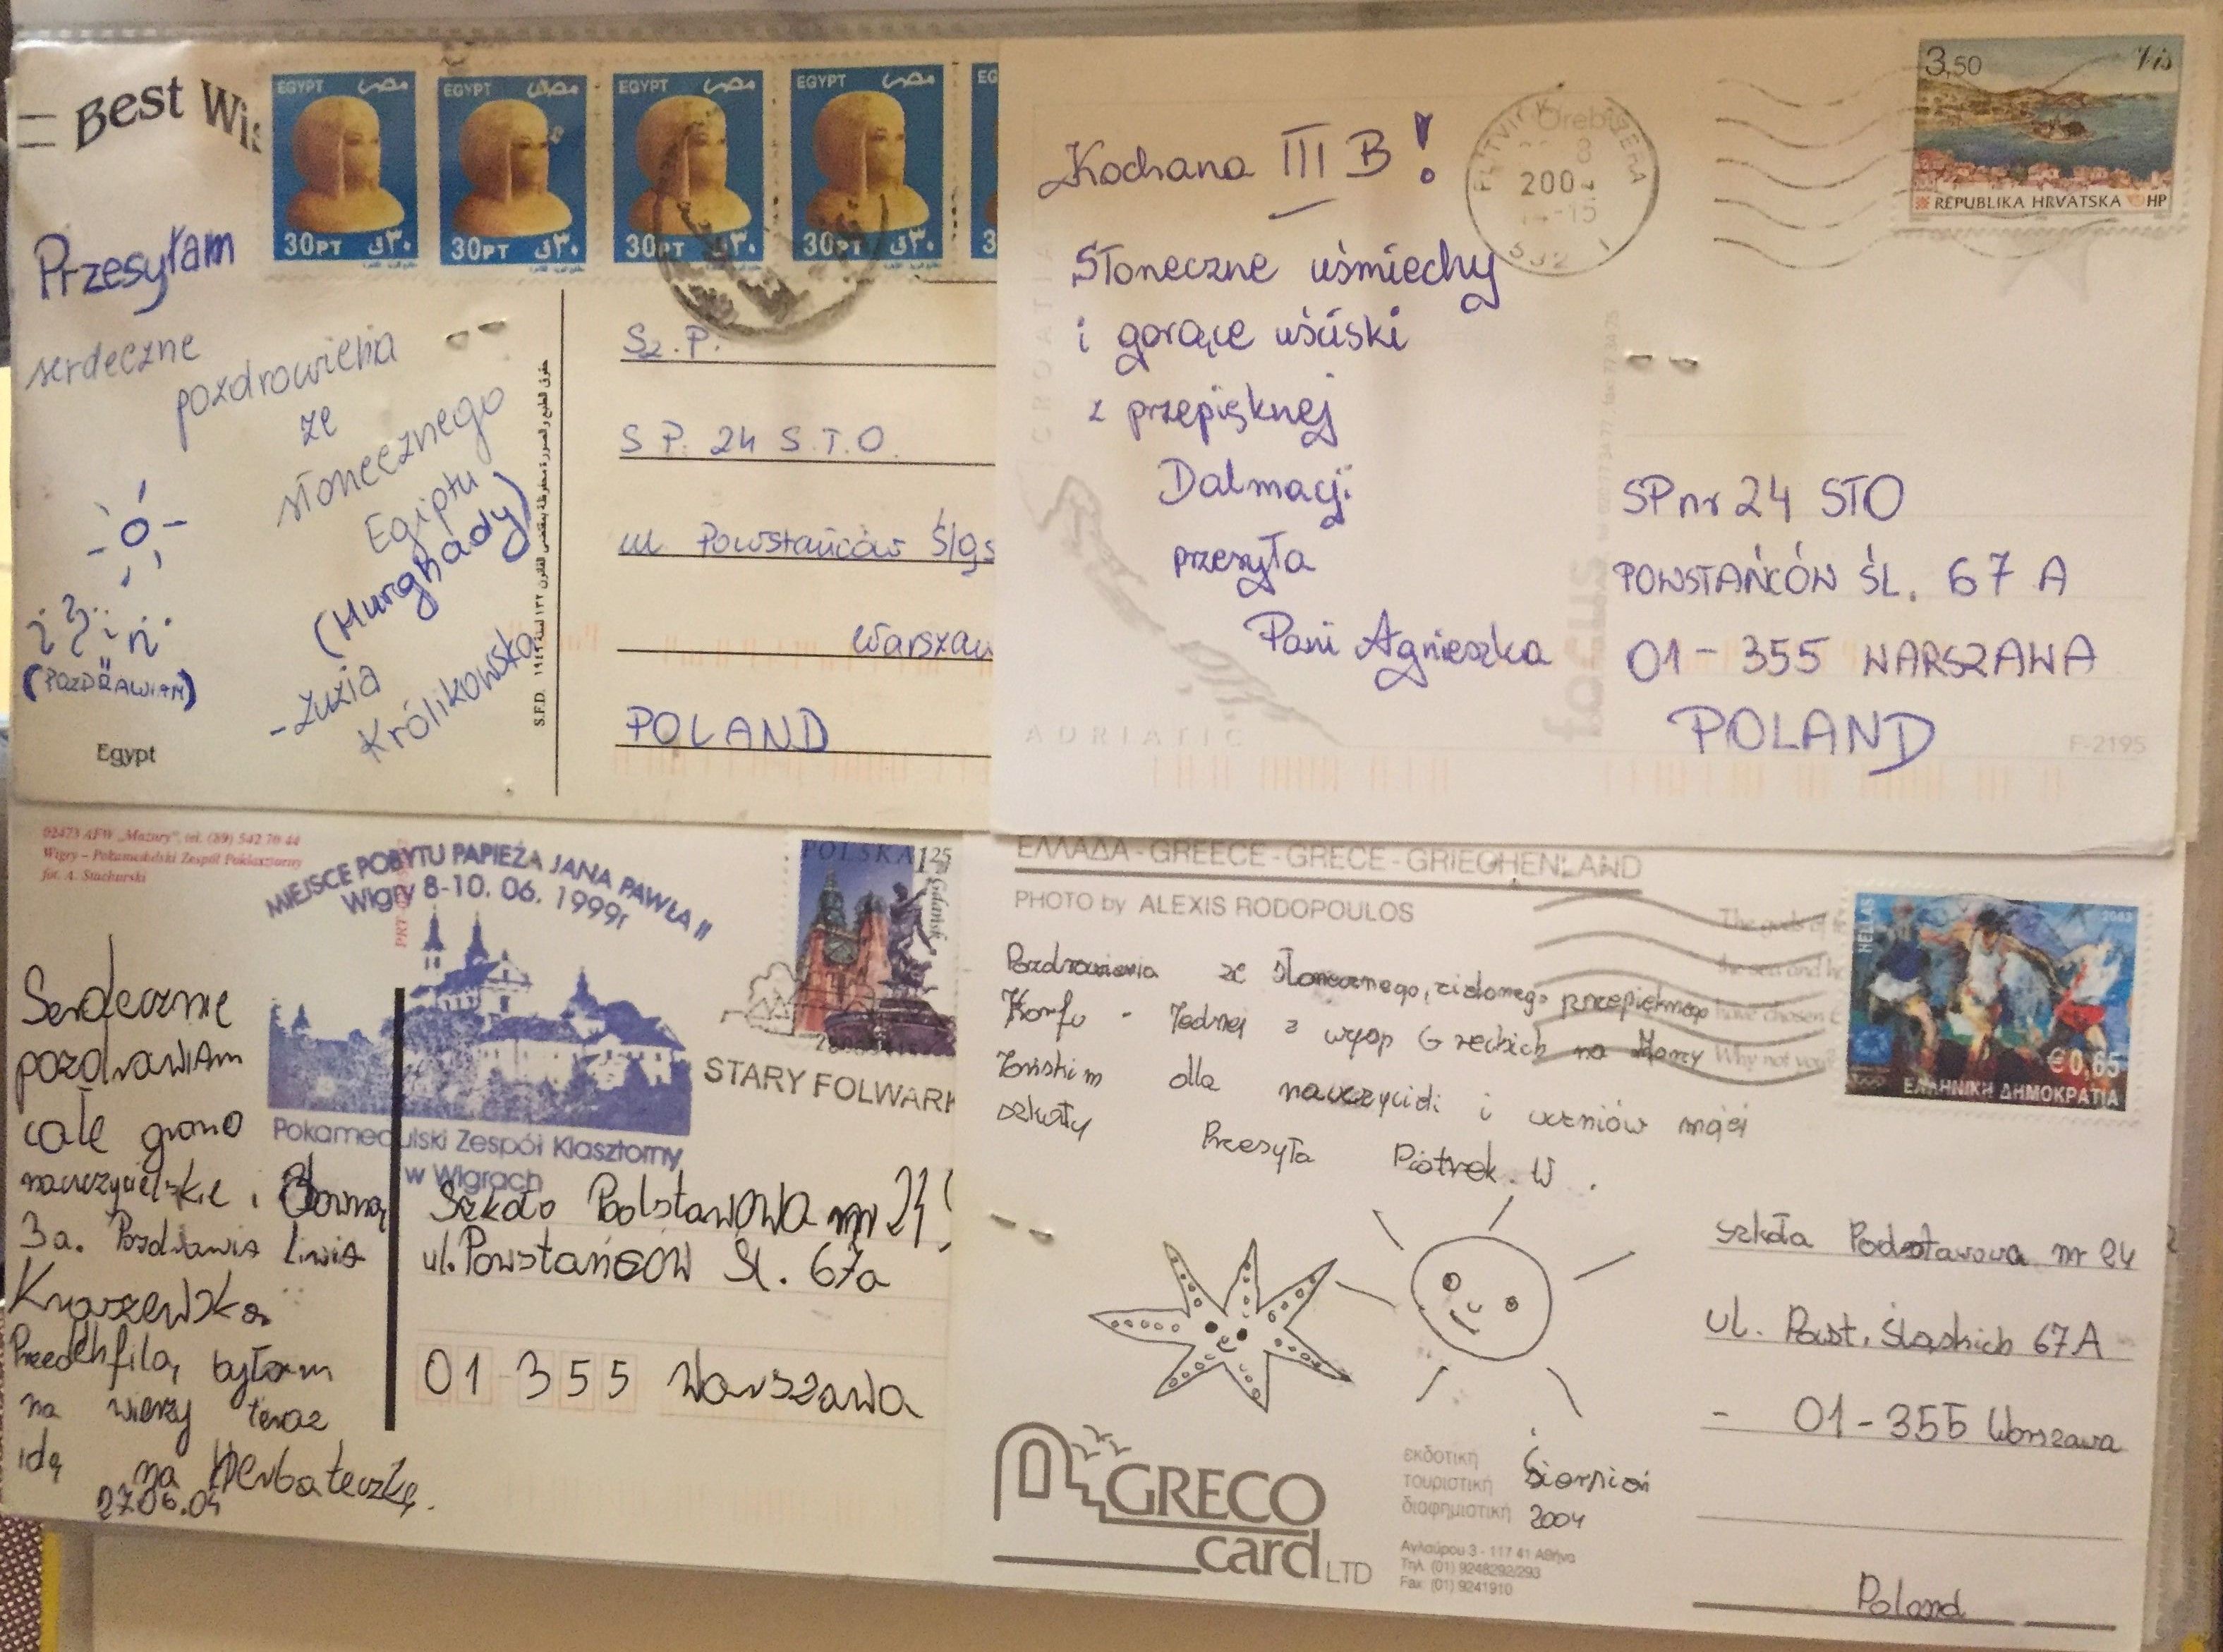 Best Wis
EGYPT مصر
30PT ٣٠ق
EGYPT مصر
30PT ٣٠ق
EGYPT مصر
30PT ٣٠ق
EGYPT مصر
30PT ٣٠ق
EG
3
Przesyłam
serdeczne
pozdrowienia
ze
słonecznego
Egiptu
(Hurghady)
(POZDRAWIAM)
-Zuzia
Królikowska
Egypt
S.F.D.
Sz. P.
S P. 24 S.T.O.
ul Powstańców Śląs
Warszaw
POLAND
Kochana III B!
Słoneczne uśmiechy
i gorące uściski
z przepięknej
Dalmacji
przesyła
Pani Agnieszka
2004
3,50 Vis
REPUBLIKA HRVATSKA HP
SP nr 24 STO
POWSTAŃCÓW ŚL. 67 A
01-355 WARSZAWA
POLAND
CROATIA
ADRIATIC
focus
F-2195
02473 AFW „Mazury", tel. (89) 542 70 44
Wigry – Pokamedulski Zespół Poklasztorny
fot. A. Stachurski
MIEJSCE POBYTU PAPIEŻA JANA PAWŁA II
Wigry 8-10. 06. 1999r
Pokamedulski Zespół Klasztorny
w Wigrach
POLSKA 125
Gdańsk
STARY FOLWARK
Serdecznie
pozdrawiam
całe grono
nauczycielskie i
3a. Pozdrawia Liwia
Kraszewska
Przed chfilą byłam
na wierzy teraz
idę na herbateczkę.
27.06.04
Szkoła Podstawowa nr 24
ul. Powstańców Śl. 67a
01-355 Warszawa
ΕΛΛΑΔΑ - GREECE - GRECE - GRIECHENLAND
PHOTO by ALEXIS RODOPOULOS
The gods of
the sea and
have chosen
Why not you?
HELLAS 2003
€0,65
ΕΛΛΗΝΙΚΗ ΔΗΜΟΚΡΑΤΙΑ
Pozdrowienia ze słonecznego, zielonego przepięknego
Korfu - Jednej z wysp Greckich na Morzy
Jońskim dla nauczycieli i uczniów mojej
szkoły Przesyła Piotrek. W.
szkoła Podstawowa nr 24
ul. Powst. Śląskich 67A
- 01-355 Warszawa
Poland
GRECO
card LTD
εκδοτική
τουριστική
διαφημιστική
Sierpień
2004
Αγλαύρου 3 - 117 41 Αθήνα
Τηλ. (01) 9248292/293
Fax (01) 9241910